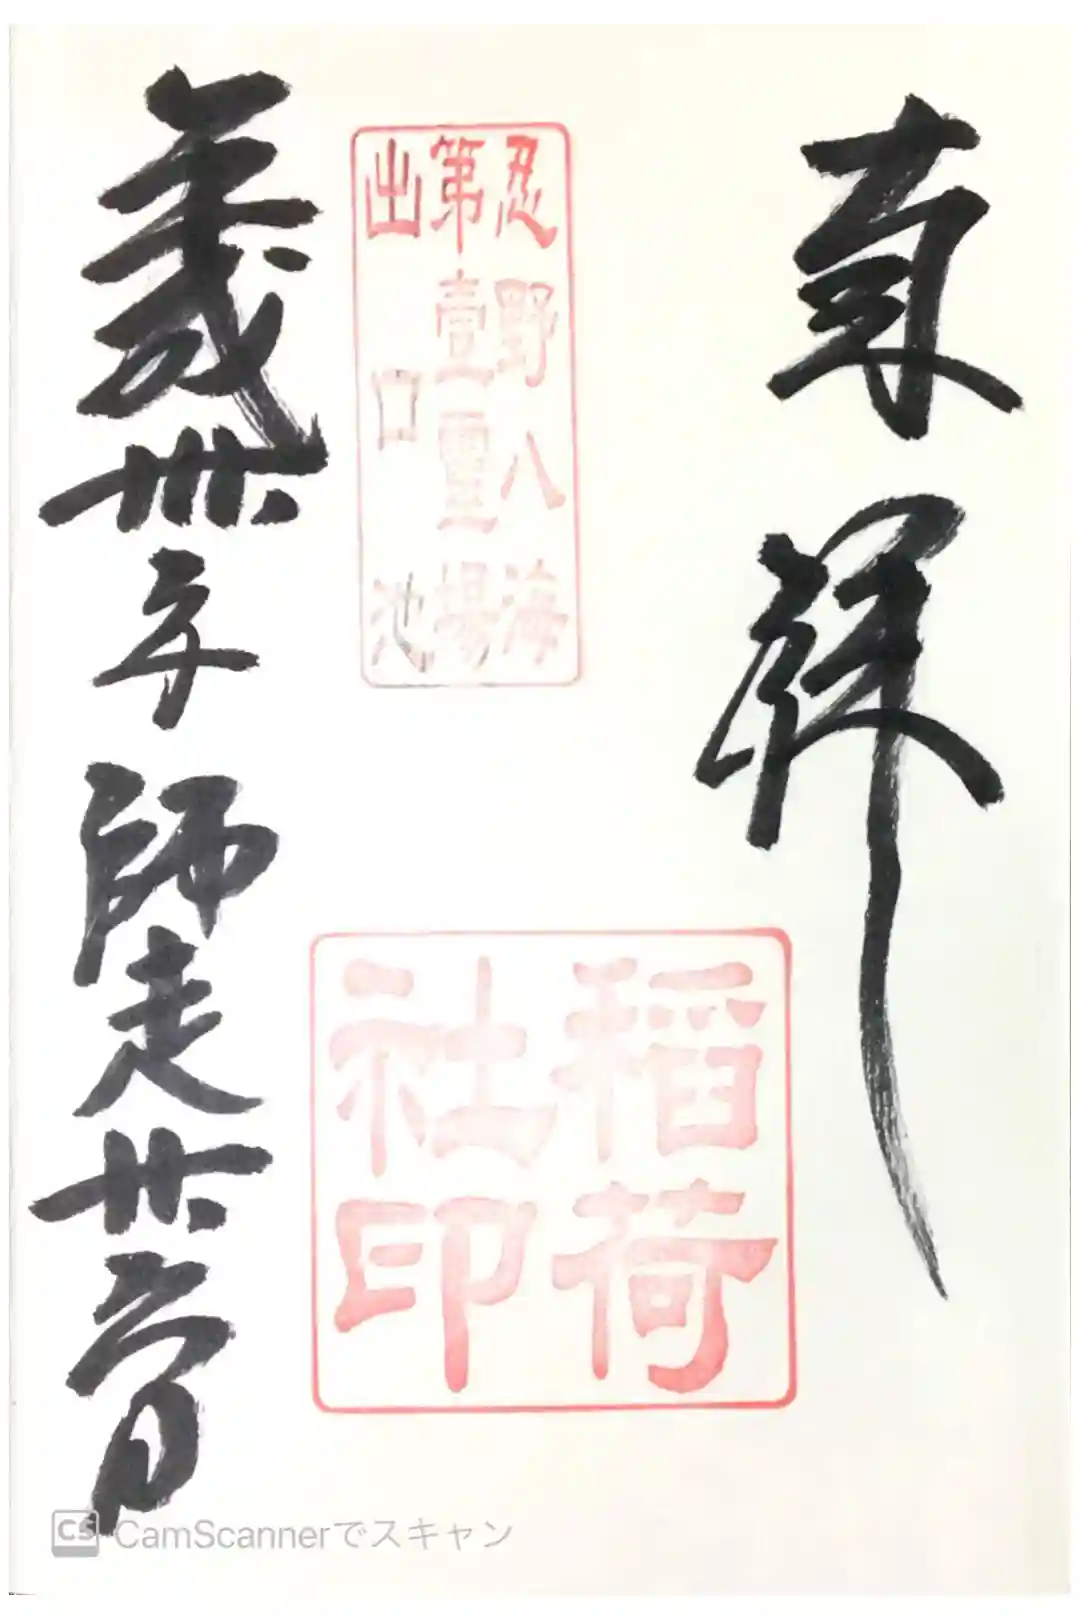 奉拜
忍野八海
第壹霊場
出口池
稲荷
社印
平成卅年師走廿六日
CamScannerでスキャン